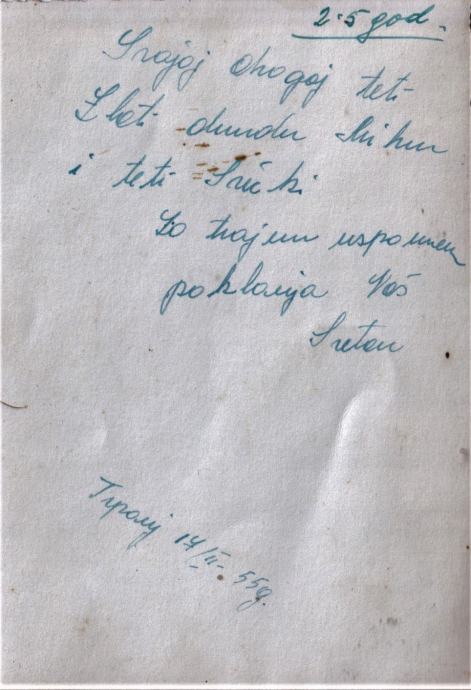 2·5 god.
Svojoj dragoj teti
Zlati dundu Mihu
i teti Srećki
Za trajnu uspomenu
poklanja Vaš
Sretan
Trpanj 17/II- 55g.